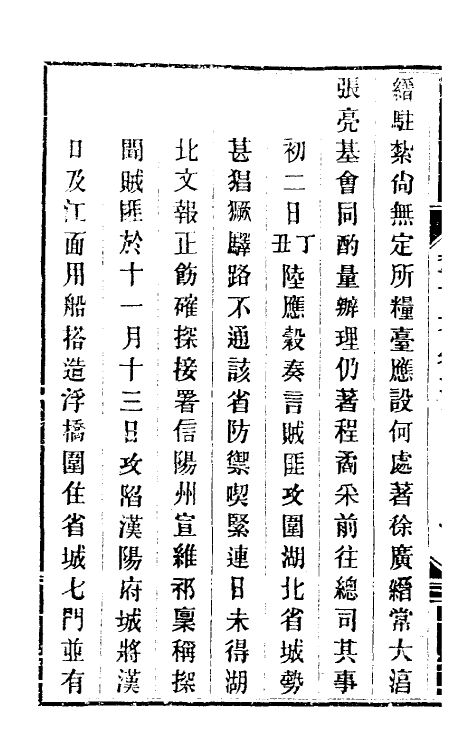 縉駐紮尙無定所糧臺應設何處著徐廣縉常大湻
張亮基會同酌量辦理仍著程矞采前往總司其事
初二日丁丑陸應穀奏言賊匪攻圍湖北省城勢
甚猖獗驛路不通該省防禦喫緊連日未得湖
北文報正飭確探接署信陽州宣維祁稟稱探
聞賊匪於十一月十三日攻陷漢陽府城將漢
口及江面用船搭造浮橋圍住省城七門並有